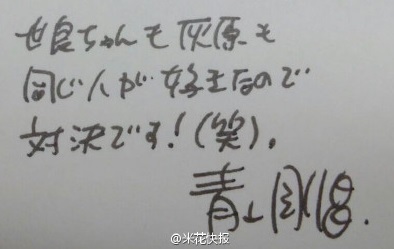 世良ちゃんも灰原も
同じ人が好きなので
対決です！(笑)。
青山剛昌.
@米花快报